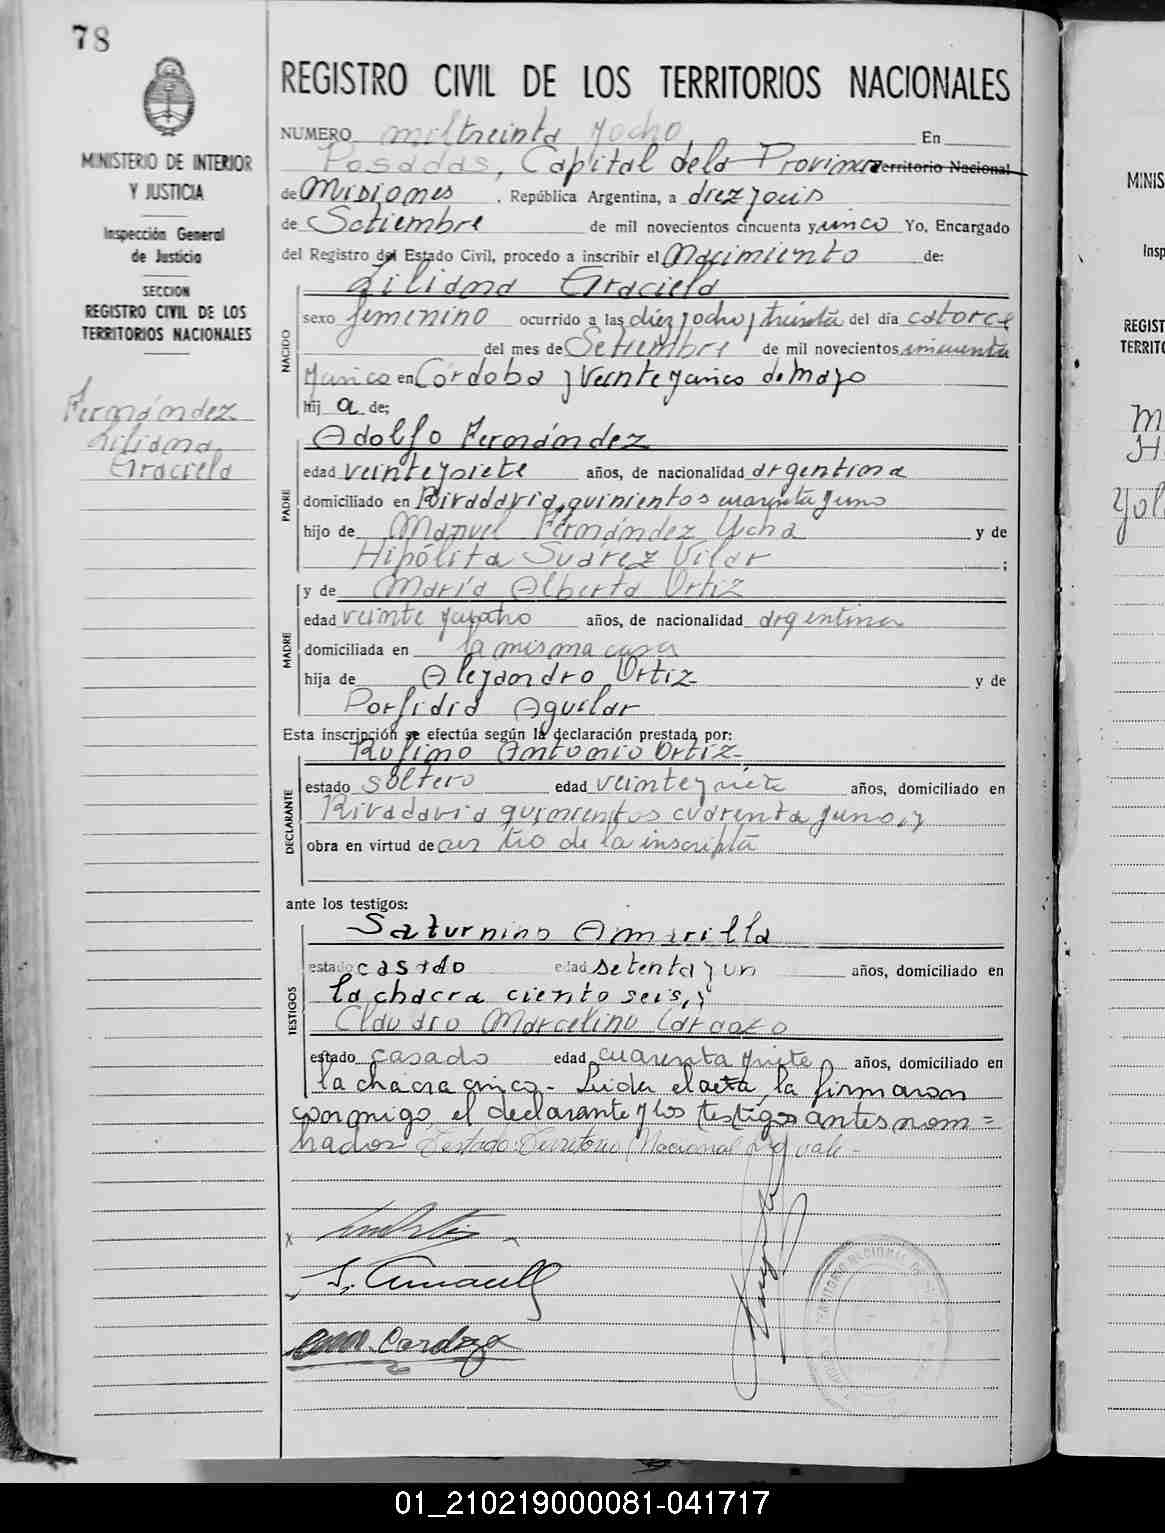 78
MINISTERIO DE INTERIOR
Y JUSTICIA
Inspección General
de Justicia
SECCION
REGISTRO CIVIL DE LOS
TERRITORIOS NACIONALES
Fernández
Liliana
Graciela
REGISTRO CIVIL DE LOS TERRITORIOS NACIONALES
NUMERO mil treinta y ocho En
Posadas, Capital de la Provincia Territorio Nacional
de Misiones, República Argentina, a diez y seis
de Setiembre de mil novecientos cincuenta y cinco Yo, Encargado
del Registro del Estado Civil, procedo a inscribir el Nacimiento de:
NACIDO
Liliana Graciela
sexo femenino ocurrido a las diez y ocho y treinta del día catorce
del mes de Setiembre de mil novecientos cincuenta
y cinco en Córdoba y Veinte y cinco de Mayo
hij a de;
PADRE
Adolfo Fernández
edad veinte y siete años, de nacionalidad argentina
domiciliado en Rivadavia, quinientos cuarenta y uno
hijo de Manuel Fernández Ucha y de
Hipólita Suárez Vilar ;
y de María Alberta Ortiz
MADRE
edad veinte y cuatro años, de nacionalidad argentina
domiciliada en la misma casa
hija de Alejandro Ortiz y de
Porfidia Aguilar
Esta inscripción se efectúa según la declaración prestada por:
DECLARANTE
Rufino Antonio Ortiz
estado soltero edad veinte y siete años, domiciliado en
Rivadavia quinientos cuarenta y uno, y
obra en virtud de ser tío de la inscripta
ante los testigos:
TESTIGOS
Saturnino Amarilla
estado casado edad setenta y un años, domiciliado en
la chacra ciento seis, y
Claudio Marcelino Cardozo
estado casado edad cuarenta y siete años, domiciliado en
la chacra cinco.- Leida el acta, la firmaron
conmigo, el declarante y los testigos antes nom=
brados Testado: Territorio Nacional no vale.-
S. Amarilla
Cardozo
MINIS
Insp
REGIST
TERRITO
01_210219000081-041717